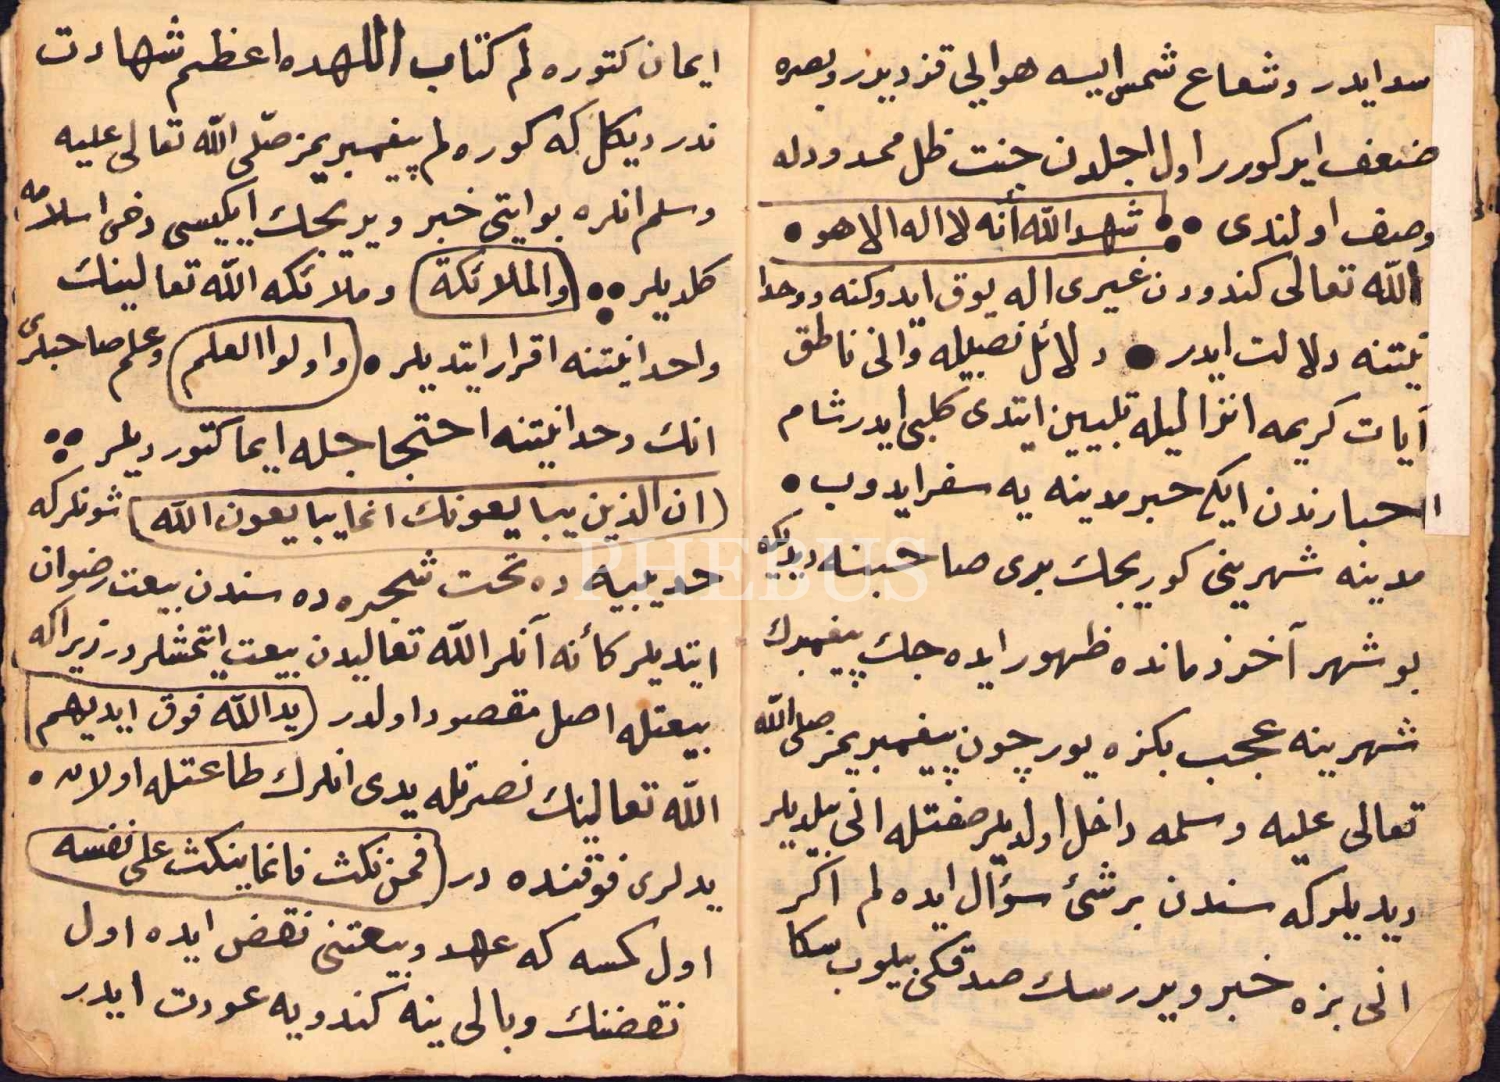 سد ایدر و شعاع شمس ایسه هوالی قزدیرر و بصره
ضعف ایر کورر اول اجلدن جنت ظل ممدود له
وصف اولندی شهد الله أنه لا اله الا هو
الله تعالی کندودن غیری اله یوق ایدوکنه و وحدا
نیتنه دلالت ایدر دلائل نصبیله والی ناطق
آیات کریمه انزالیله تبیین ایتدی کلبی ایدر شام
احبارندن ایکی حبر مدینه یه سفر ایدوب
مدینه شهرینی کوریجك بری صاحبنه دیدیکه
بو شهر آخر زمانده ظهور ایده جك پیغمبرك
شهرینه عجب بکزه یور چون پیغمبریمز صلی الله
تعالی علیه وسلمه داخل اولدیلر صفتله انی بیلدیلر
دیدیلر که سندن بر شئ سؤال ایده لم اکر
انی بزه خبر ویررسك صدقکی بیلوب سکا
ایمان کتوره لم کتاب اللهده اعظم شهادت
ندر دیکل که کوره لم پیغمبریمز صلی الله تعالی علیه
وسلم انلره بو ایتی خبر ویریجك ایکیسی دخی اسلامه
کلدیلر والملائکة و ملائکه الله تعالینك
واحدانیتنه اقرار ایتدیلر واولوا العلم وعلم صاحبلری
انك وحدانیتنه احتجاجله ایما کتوردیلر
ان الذین یبایعونك انما یبایعون الله شونلر که
حدیبیه ده تحت شجره ده سندن بیعت رضوان
ایتدیلر کأنه آنلر الله تعالیدن بیعت ایتمشلردر زیرا که
بیعتله اصل مقصود اولدر ید الله فوق ایدیهم
الله تعالینك نصرتله یدی انلرك طاعتله اولان
یدلری فوقنده در فمن نکث فانما ینکث علی نفسه
اول کمسه که عهد و بیعتنی نقض ایده اول
نقضنك وبالی ینه کندویه عودت ایدر
PHEBUS